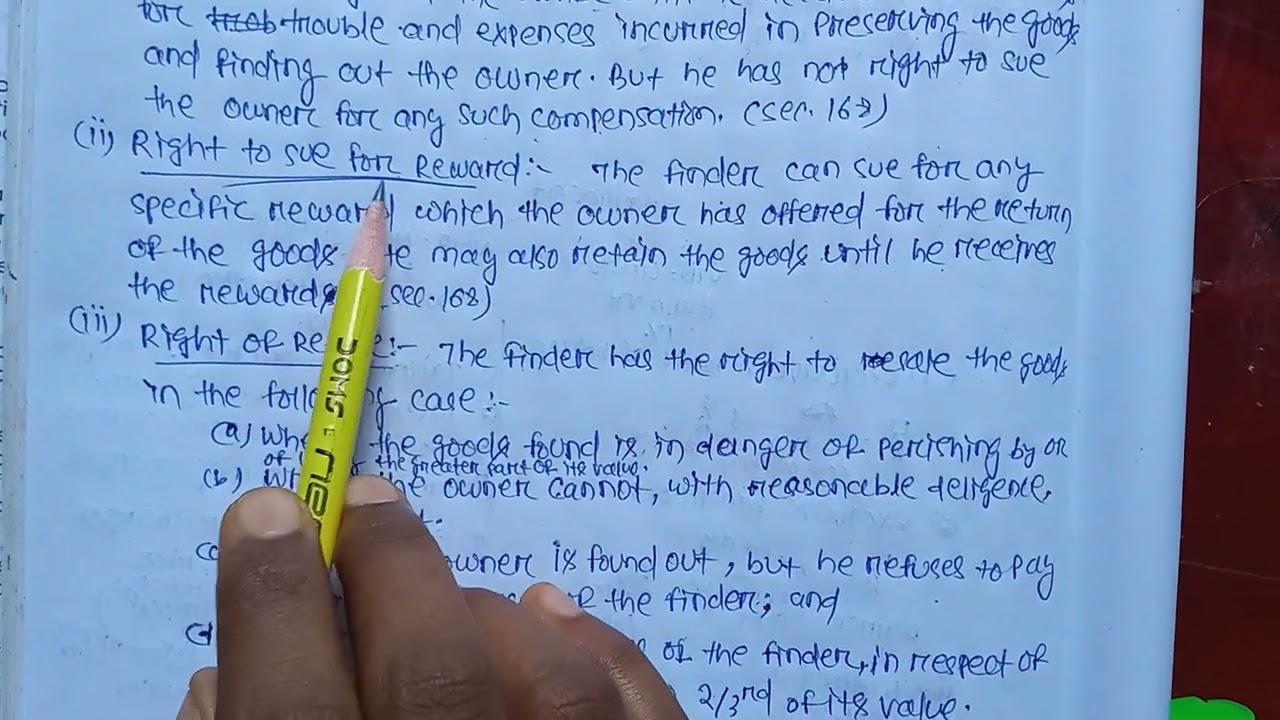 for trouble and expenses incurred in preserving the goods
and finding out the owner. But he has not right to sue
the owner for any such compensation. (sec. 168)
(ii) Right to sue for Reward:- The finder can sue for any
specific reward which the owner has offered for the return
of the goods. He may also retain the goods until he receives
the reward sec. 168)
(iii) Right of Re :- The finder has the right to resale the goods
in the following case:-
(a) Where the goods found is in danger of perishing by or
of the greater part of its value.
(b) the owner cannot, with reasonable deligence,
owner is found out, but he refuses to pay
of the finder; and
of the finder, in respect of
2/3rd of its value.
DOMS
neon